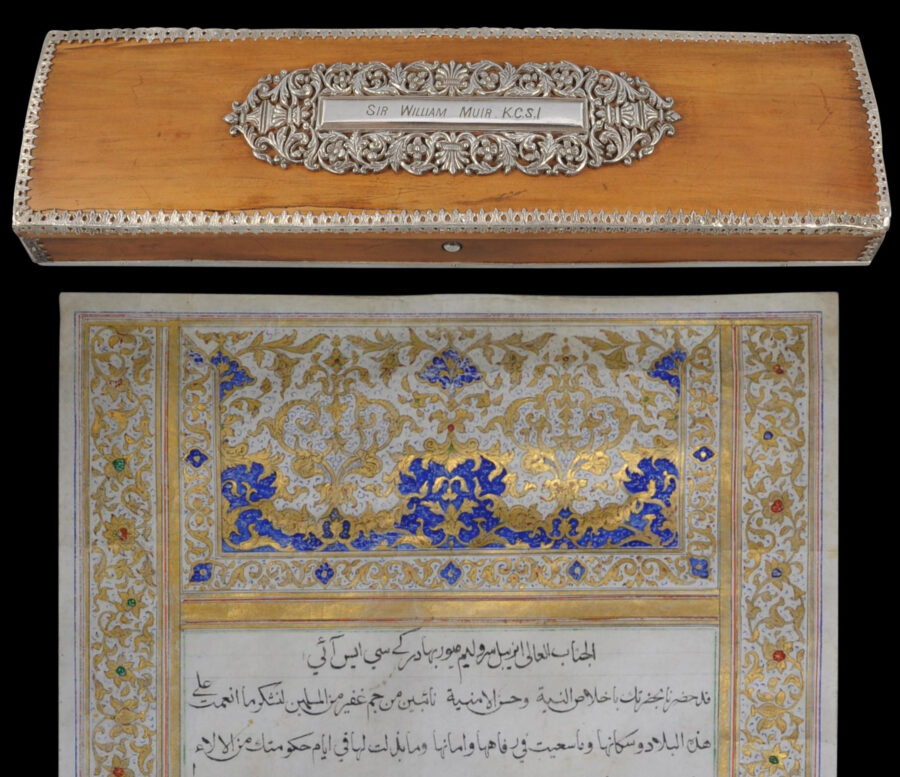 SIR WILLIAM MUIR. K.C.S.I
الجناب العالى انريبل سر وليم ميور بهادر كے سي ايس آئي
قد حضرنا بحضرتك باخلاص النية وحسن الامنية نائبين من جم غفير من المسلمين لنشكر ما انعمت على
هذه البلاد وسكانها وما سعيت في رفاهها وامانها وما بذلت لها في ايام حكومتك من الالاء